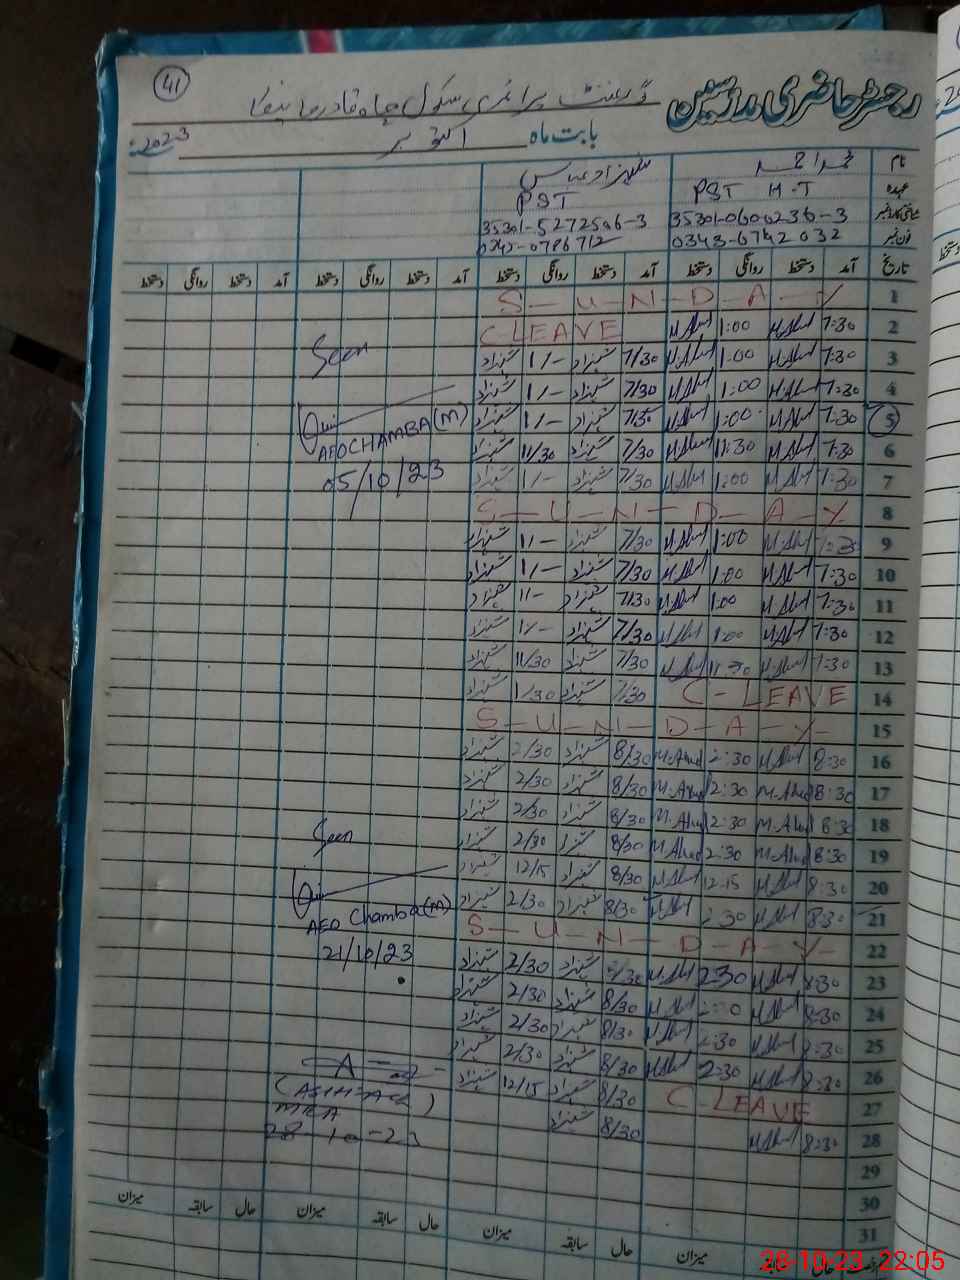 41
رجسٹر حاضری مدرسین
گورنمنٹ پرائمری سکول چاہ قادر
بابت ماہ اکتوبر 2023
نام
شہزاد عباس
عہدہ PST H-T PST
شناختی کارڈ نمبر 35301-0600236-3 35301-5272506-3
فون نمبر 0343-6742032 0345-0786712
تاریخ آمد دستخط روانگی دستخط آمد دستخط روانگی دستخط آمد دستخط روانگی دستخط آمد دستخط روانگی دستخط
1 S-U-N-D-A-Y
2 7:30 M.Ahad 1:00 M.Ahad C-LEAVE
3 7:30 M.Ahad 1:00 M.Ahad 7/30 شہزاد 1/- شہزاد
4 7:30 M.Ahad 1:00 M.Ahad 7/30 شہزاد 1/- شہزاد
5 7:30 M.Ahad 1:00 M.Ahad 7/30 شہزاد 1/- شہزاد
6 7:30 M.Ahad 11:30 M.Ahad 7/30 شہزاد 11/30 شہزاد
7 7:30 M.Ahad 1:00 M.Ahad 7/30 شہزاد 1/- شہزاد
8 S-U-N-D-A-Y
9 M.Ahad 1:00 M.Ahad 7/30 شہزاد 1/- شہزاد
10 7:30 M.Ahad 1:00 M.Ahad 7/30 شہزاد 1/- شہزاد
11 7:30 M.Ahad 1:00 M.Ahad 7/30 شہزاد 1/- شہزاد
12 7:30 M.Ahad 1:00 M.Ahad 7/30 شہزاد 1/- شہزاد
13 7:30 M.Ahad 11:30 M.Ahad 7/30 شہزاد 11/30 شہزاد
14 C-LEAVE 7/30 شہزاد 1/30 شہزاد
15 S-U-N-D-A-Y
16 8:30 M.Ahad 2:30 M.Ahad 8/30 شہزاد 2/30 شہزاد
17 8:30 M.Ahad 2:30 M.Ahad 8/30 شہزاد 2/30 شہزاد
18 8:30 M.Ahad 2:30 M.Ahad 8/30 شہزاد 2/30 شہزاد
19 8:30 M.Ahad 2:30 M.Ahad 8/30 شہزاد 2/30 شہزاد
20 8:30 M.Ahad 12:15 M.Ahad 8/30 شہزاد 12/15 شہزاد
21 8:30 M.Ahad 2:30 M.Ahad 8/30 شہزاد 2/30 شہزاد
22 S-U-N-D-A-Y
23 8:30 M.Ahad 2:30 M.Ahad 8/30 شہزاد 2/30 شہزاد
24 8:30 M.Ahad M.Ahad 8/30 شہزاد 2/30 شہزاد
25 8:30 M.Ahad 2:30 M.Ahad 8/30 شہزاد 2/30 شہزاد
26 8:30 M.Ahad 2:30 M.Ahad 8/30 شہزاد 2/30 شہزاد
27 C-LEAVE 8/30 شہزاد 12/15 شہزاد
28 8:30 M.Ahad 8/30 شہزاد
29
30
31
Seen
AEO CHAMBA(M)
05/10/23
Seen
AEO Chamba(M)
21/10/23
MEA
28-10-23
حال سابقہ میزان حال سابقہ میزان حال سابقہ میزان حال سابقہ میزان
28-10-23 22:05